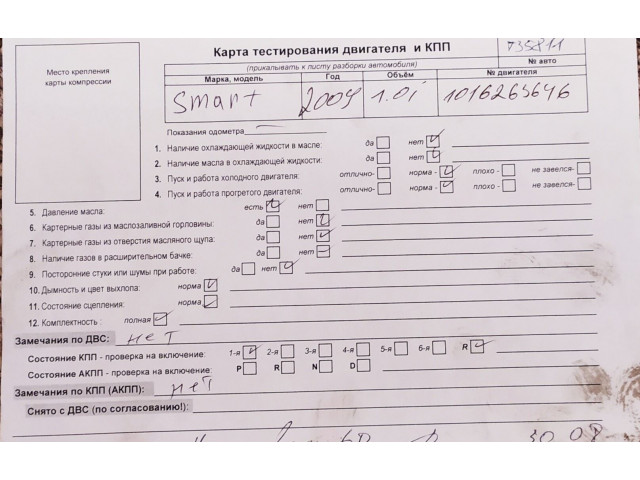 Карта тестирования двигателя и КПП
735811
(прикалывать к листу разборки автомобиля)
№ авто
Место крепления
карты компрессии
Марка, модель Год Объём № двигателя
Smart 2009 1.0i 1016263646
Показания одометра
1. Наличие охлаждающей жидкости в масле: да нет
2. Наличие масла в охлаждающей жидкости: да нет
3. Пуск и работа холодного двигателя: отлично- норма - плохо - не завелся-
4. Пуск и работа прогретого двигателя: отлично- норма - плохо - не завелся-
5. Давление масла: есть нет
6. Картерные газы из маслозаливной горловины: да нет
7. Картерные газы из отверстия масляного щупа: да нет
8. Наличие газов в расширительном бачке: да нет
9. Посторонние стуки или шумы при работе: да нет
10. Дымность и цвет выхлопа: норма
11. Состояние сцепления: норма
12. Комплектность : полная
Замечания по ДВС: нет
Состояние КПП - проверка на включение: 1-я 2-я 3-я 4-я 5-я 6-я R
Состояние АКПП - проверка на включение: P R N D
Замечания по КПП (АКПП): нет
Снято с ДВС (по согласованию!):